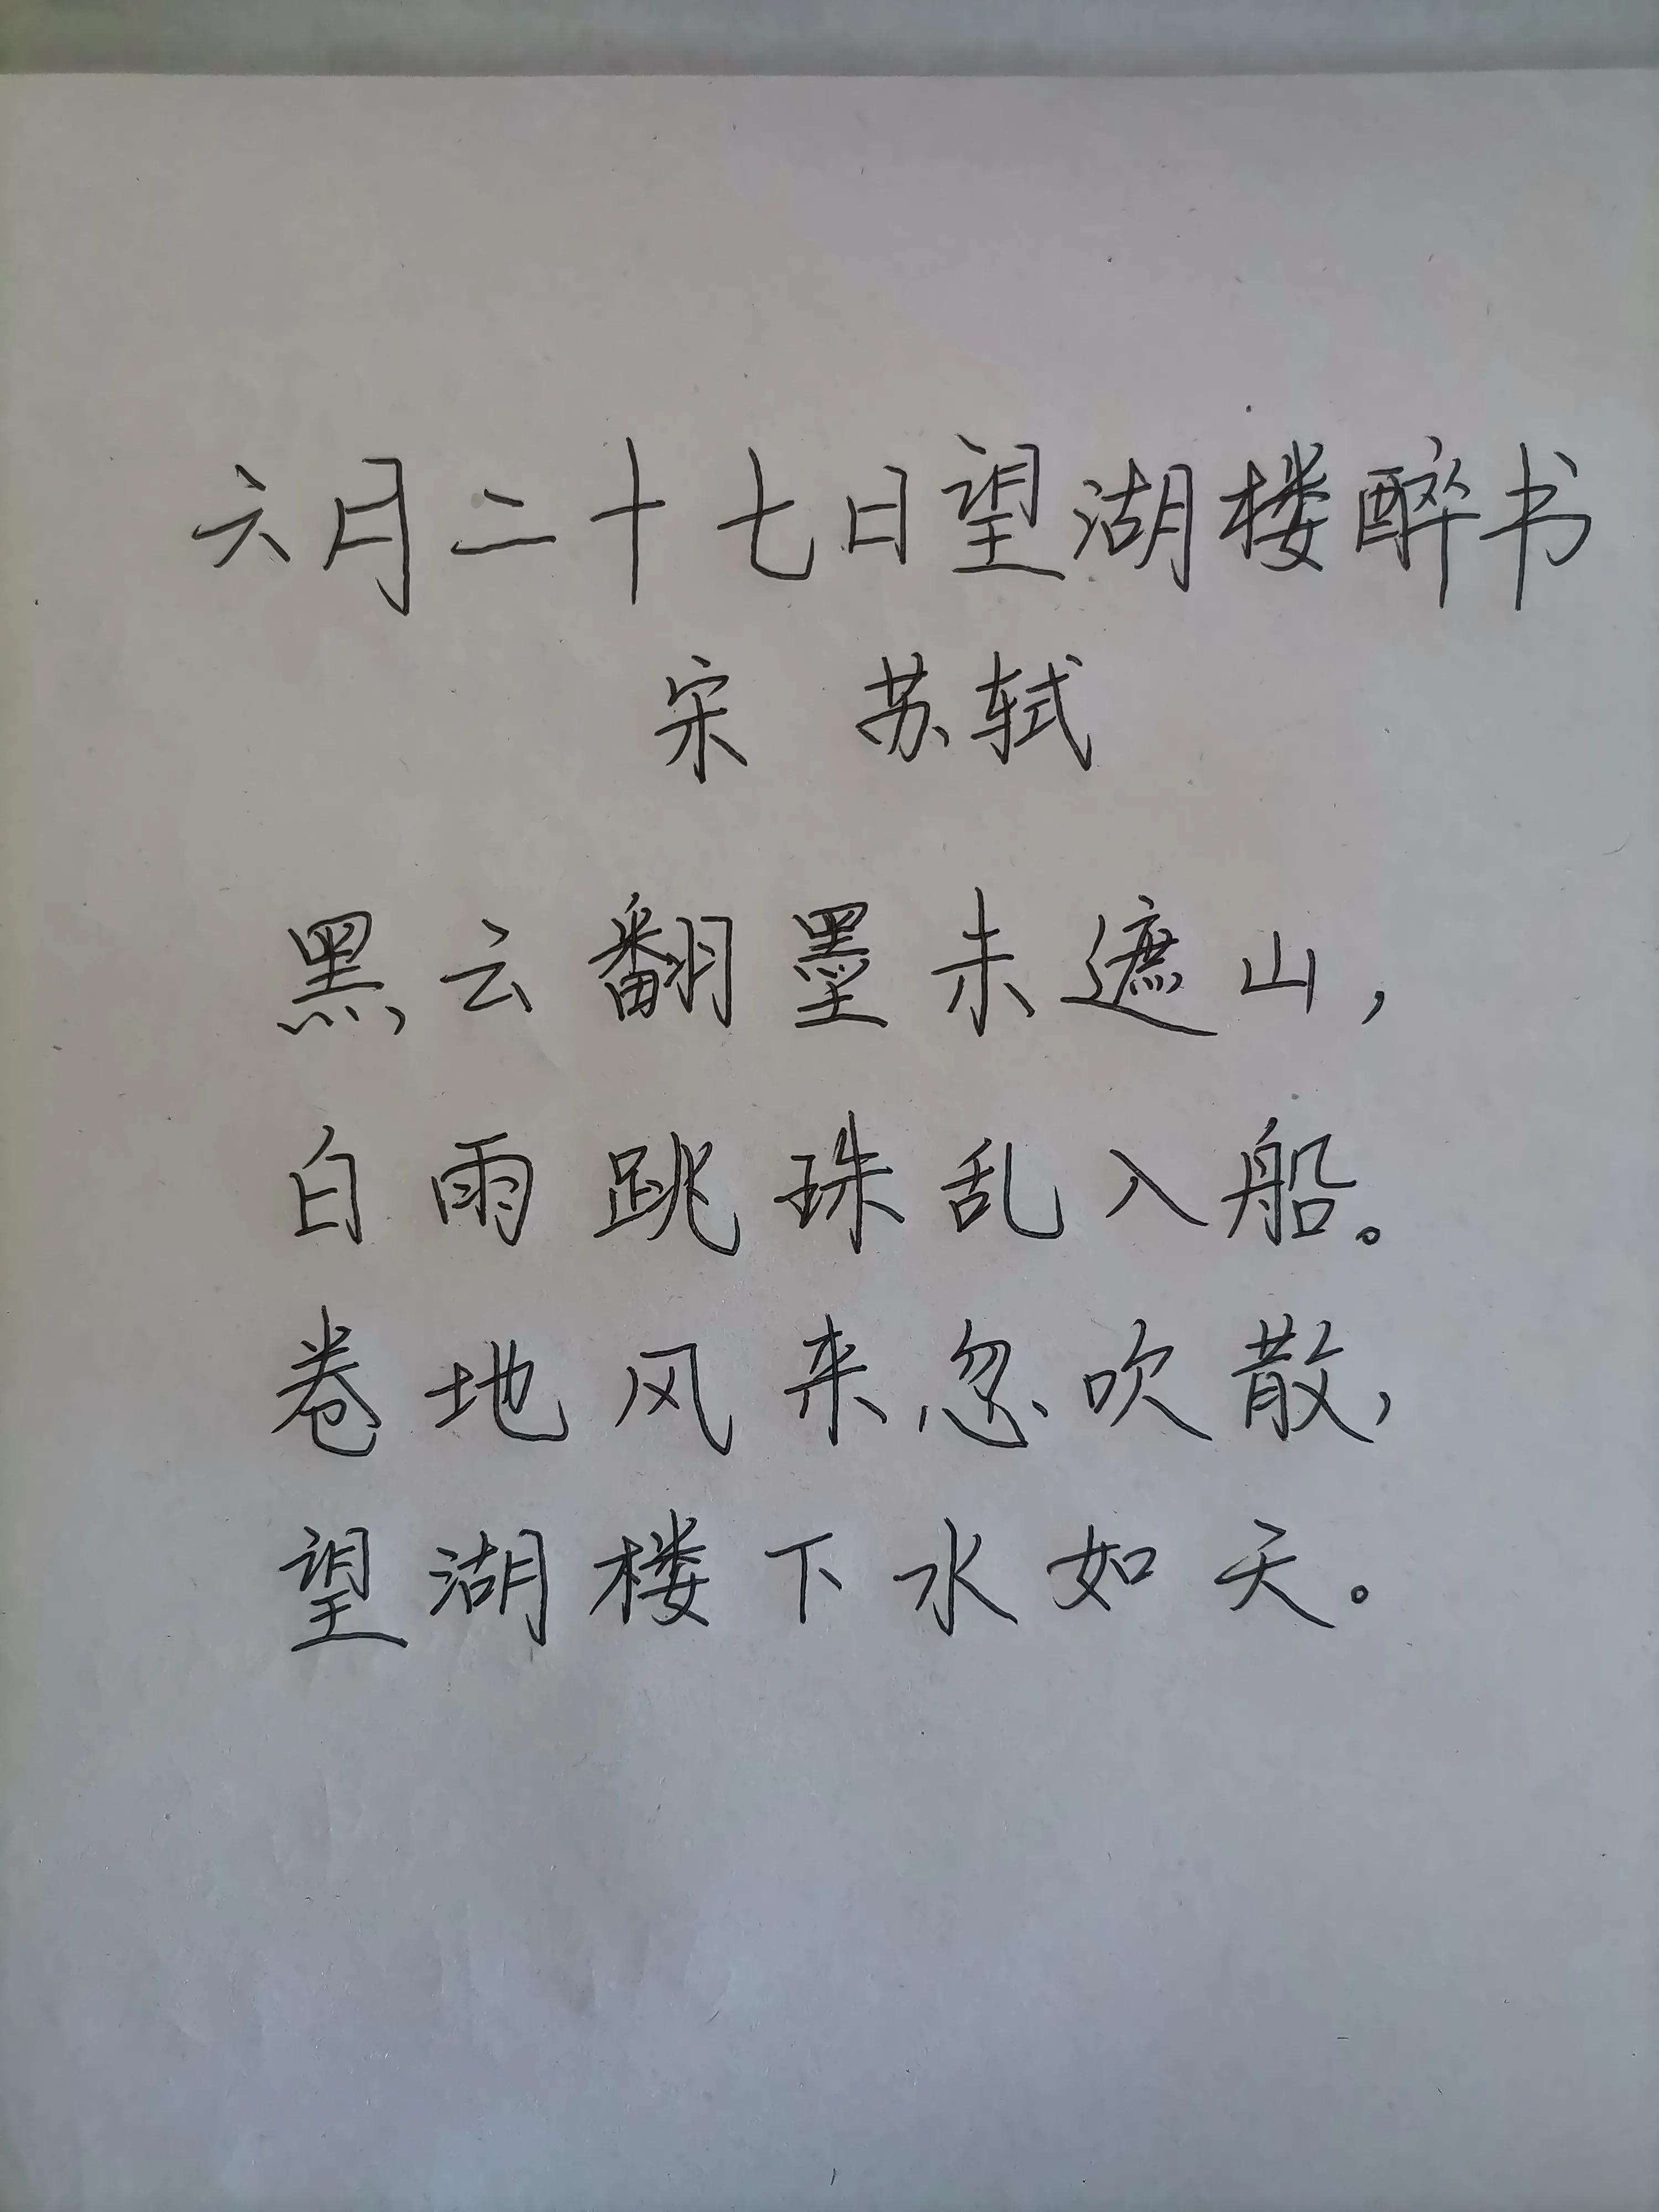 六月二十七日望湖楼醉书
宋 苏轼
黑云翻墨未遮山，
白雨跳珠乱入船。
卷地风来忽吹散，
望湖楼下水如天。